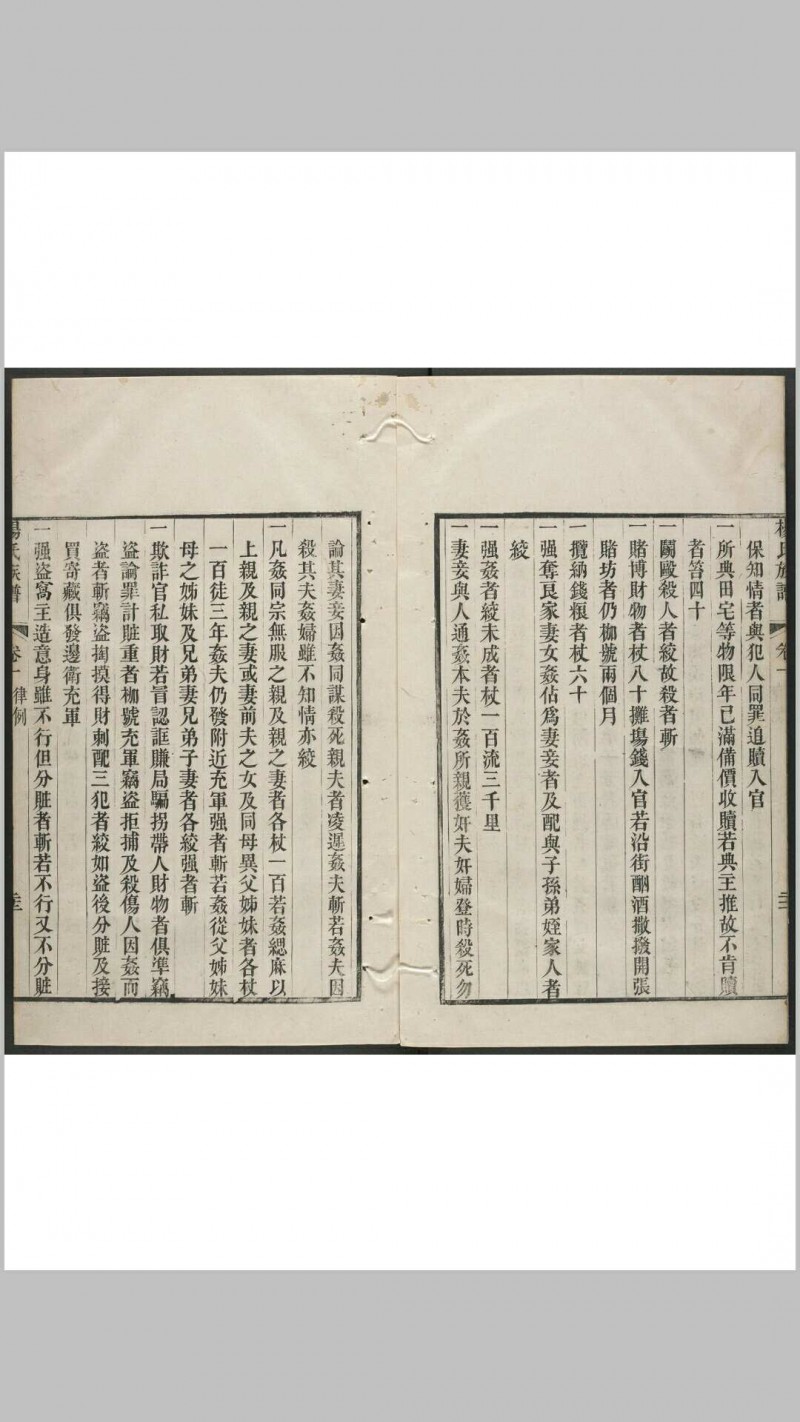 保知情者與犯人同罪追贖入官
一所典田宅等物限年已滿備價收贖若典主推故不肯贖
者笞四十
一鬭毆殺人者絞故殺者斬
一賭博財物者杖八十攤塲錢入官若沿街酗酒撒撥開張
賭坊者仍枷號兩個月
一攬納錢粮者杖六十
一强奪良家妻女姦佔爲妻妾者及配與子孫弟姪家人者
絞
一强姦者絞未成者杖一百流三千里
一妻妾與人通姦本夫於姦所親獲奸夫奸婦登時殺死勿
論其妻妾因姦同謀殺死親夫者凌遲姦夫斬若姦夫因
殺其夫姦婦雖不知情亦絞
一凡姦同宗無服之親及親之妻者各杖一百若姦緦麻以
上親及親之妻或妻前夫之女及同母異父姊妹者各杖
一百徒三年姦夫仍發附近充軍强者斬若姦從父姊妹
母之姊妹及兄弟妻兄弟子妻者各絞强者斬
一欺詐官私取財若冒認誆賺局騙拐帶人財物者俱準竊
盜論罪計賍重者枷號充軍竊盜拒捕及殺傷人因姦而
盜者斬竊盜掏摸得財刺配三犯者絞如盜後分賍及接
買寄藏俱發邊衛充軍
一强盜窩主造意身雖不行但分賍者斬若不行又不分賍
楊氏族譜 卷一 律例